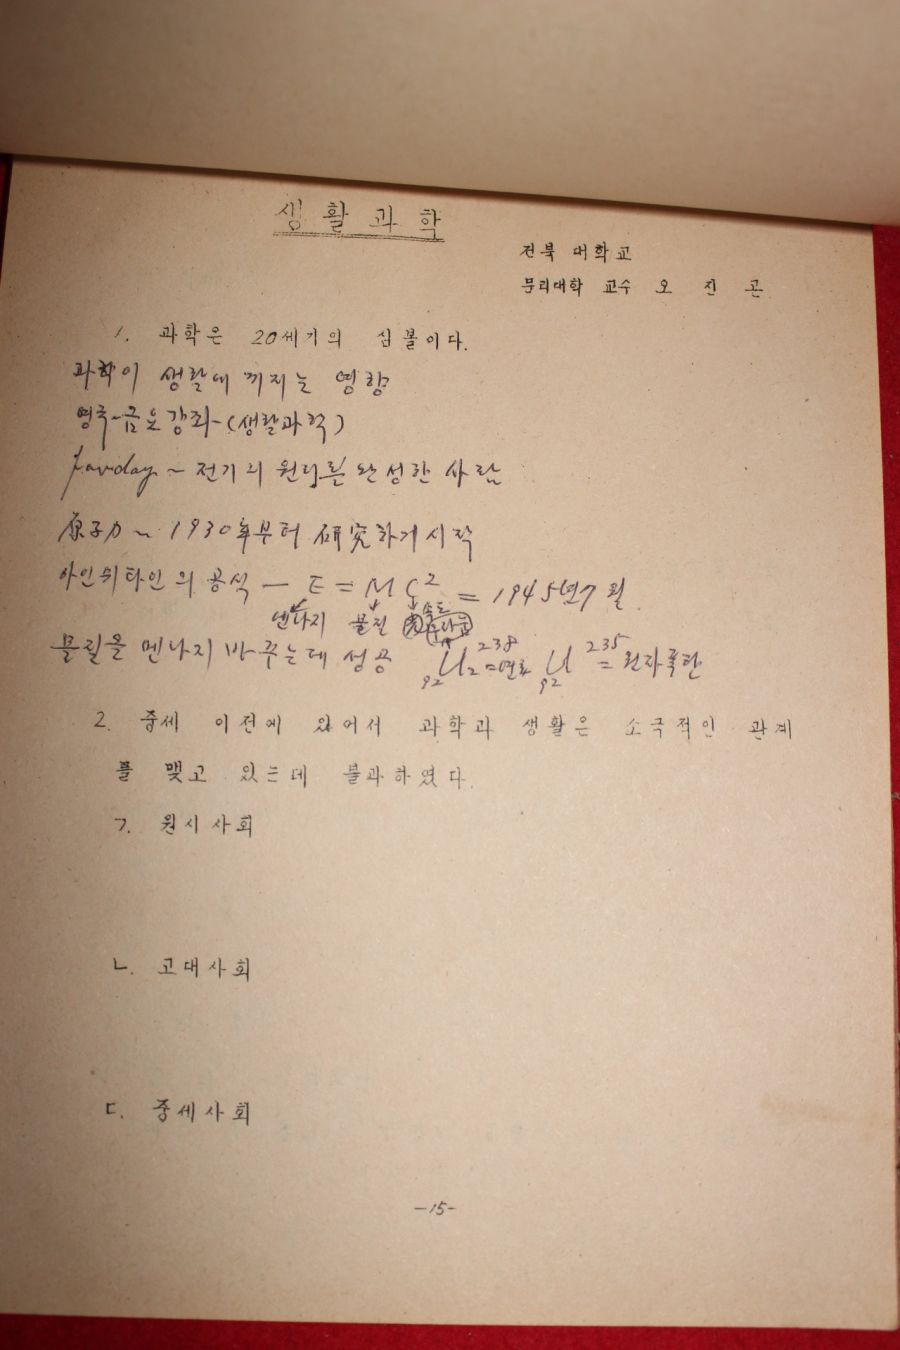 생활과학
전북 대학교
문리대학 교수 오 진 곤
1. 과학은 20세기의 심볼이다.
과학이 생활에 끼지는 영향
영국-금요강좌-(생활과학)
전기의 원리를 완성한 사람
原子力~1930年부터 研究하기시작
아인쉬타인의 공식 — E = MC² = 1945년7월
엔나지 물질 속도
물질을 멘나지 바꾸는데 성공 ₉₂U²³⁸ =연료 ₉₂U²³⁵ =원자폭탄
2. 중세 이전에 있어서 과학과 생활은 소극적인 관계
를 맺고 있는데 불과하였다.
ㄱ. 원시사회
ㄴ. 고대사회
ㄷ. 중세사회
-15-